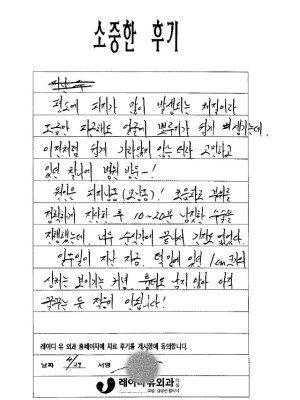 소중한 후기
평소에 피지가 많이 발생되는 체질이라
조금만 피곤해도 얼굴에 뾰루지가 쉽게 생기는데,
이전처럼 쉽게 가라앉지 않는 터라 고민하고
있던 찰나에 병원 방문~!
원인은 피지낭종 ( ). 초음파로 부위를
정확하게 진단한 후 10~20분 남짓한 수술을
진행했는데, 너무 순식간에 끝나서 긴장도 없었다.
일주일이 지난 지금, 턱 밑에 있던 1cm 크기의
상처는 보이기는 커녕, 흉터도 남지 않아 아직
꿈꾸는 듯 적응이 안됩니다!
레이디 유 외과 홈페이지에 치료 후기를 게시함에 동의합니다.
날짜 4/29 서명
레이디유외과의원